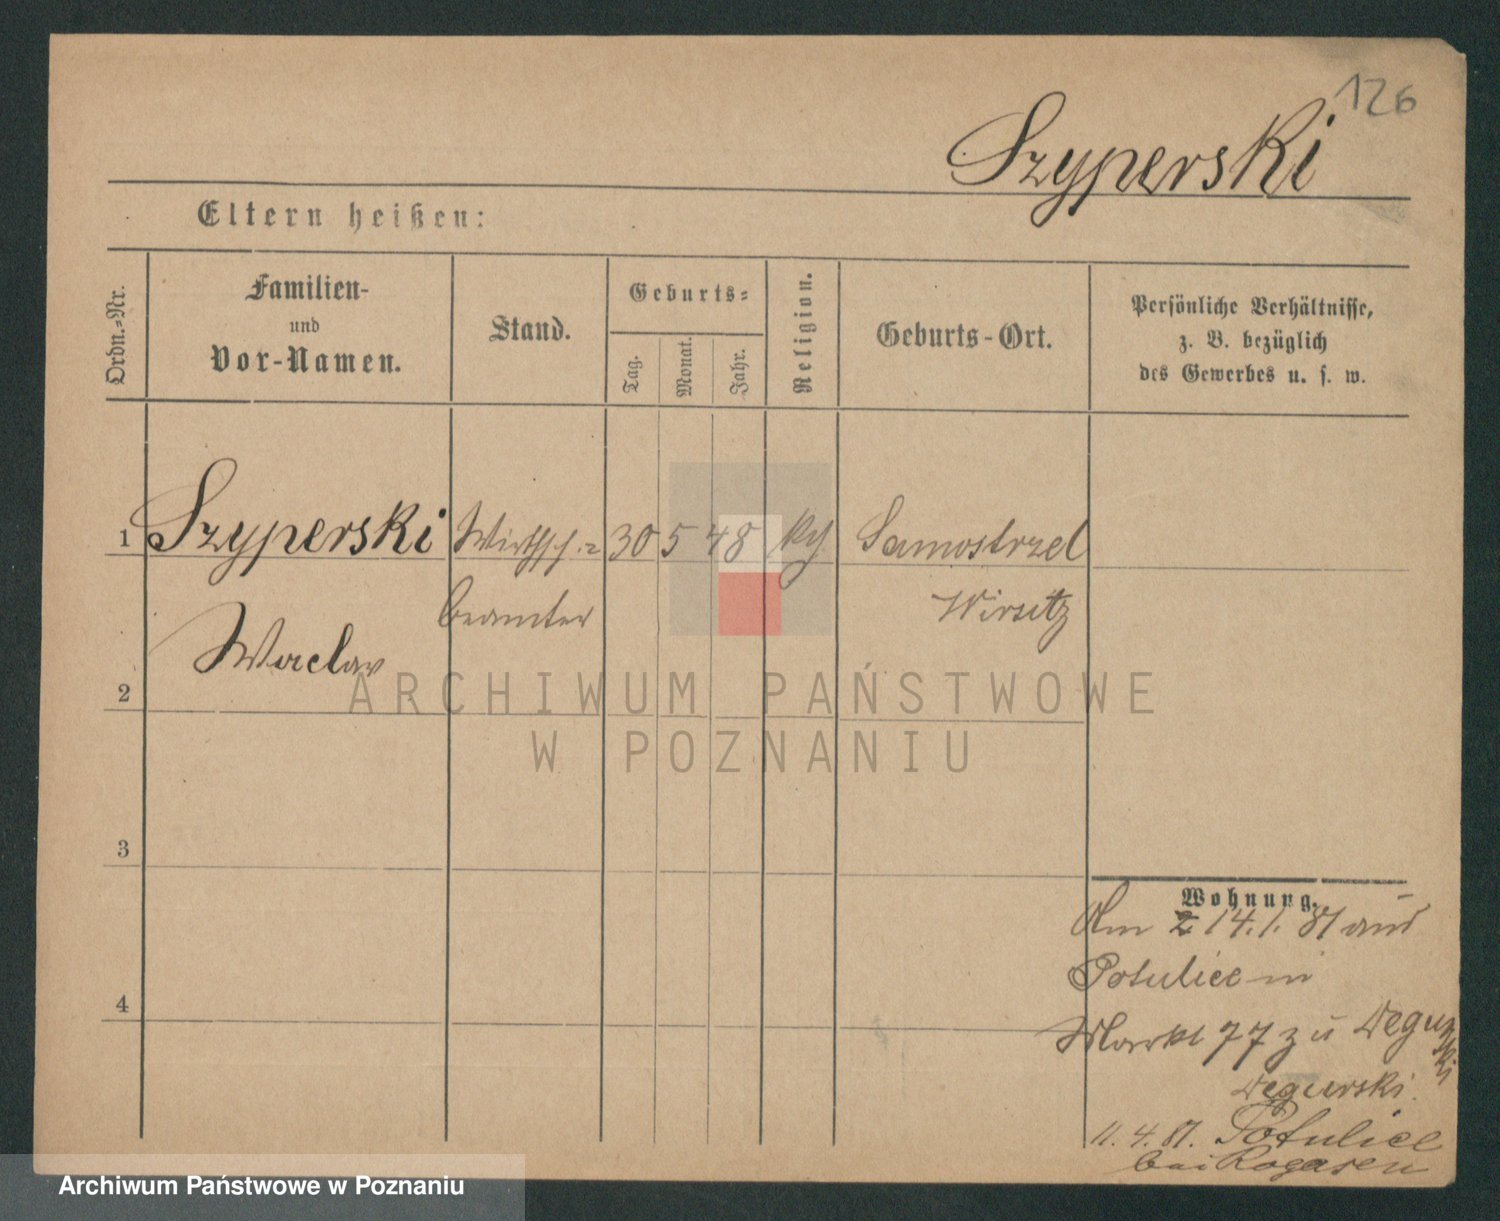 126
Szyperski
Eltern heißen:
Ordn.-Nr.
Familien-
und
Vor-Namen.
Stand.
Geburts-
Tag.
Monat.
Jahr.
Religion.
Geburts-Ort.
Persönliche Verhältnisse,
z. B. bezüglich
des Gewerbes u. s. w.
1
Szyperski
Wirthsch.-
30
5
48
Samostrzel
beamter
Wirsitz
Waclav
2
ARCHIWUM PAŃSTWOWE
W POZNANIU
3
Wohnung.
Am 14.1.81 aus
Potulice in
4
Markt 77 zu Degurski
Degurski.
11.4.81. Potulice
bei Rogasen
Archiwum Państwowe w Poznaniu